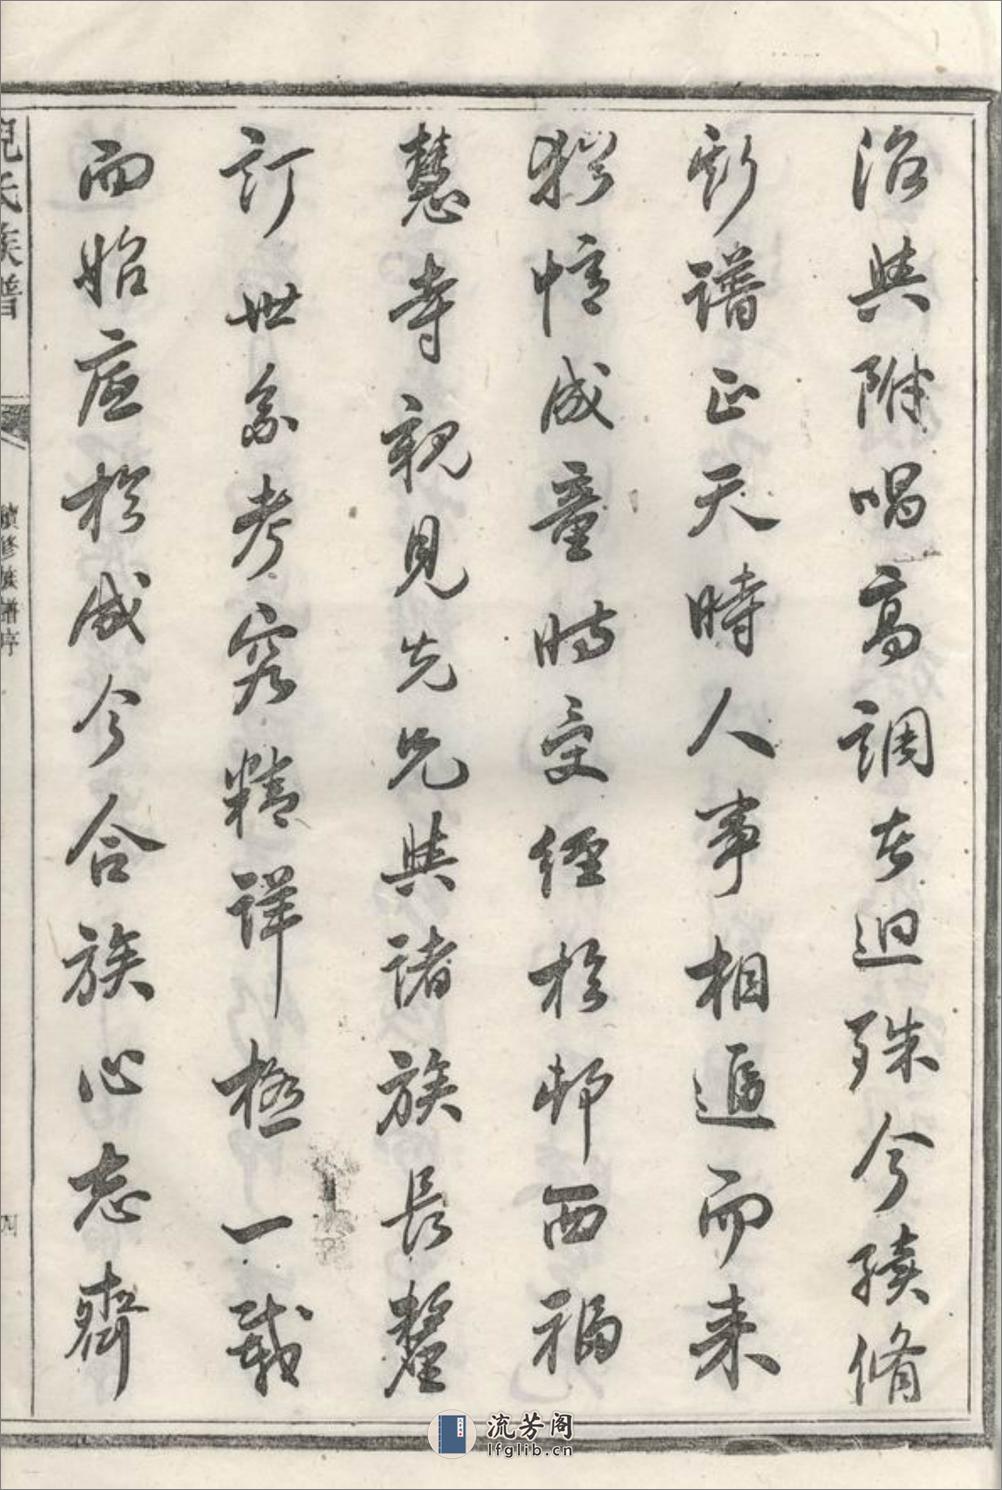 浴與附唱高調者迥殊今续脩
斯譜正天時人事相逼而来
猶憶成童時受經於邨西福
慧寺親見先兄與諸族長釐
訂世系考究精詳極一載
而始底於成今合族心志齊
兒氏族譜
續修族譜序
四
流芳阁
lfglib.cn